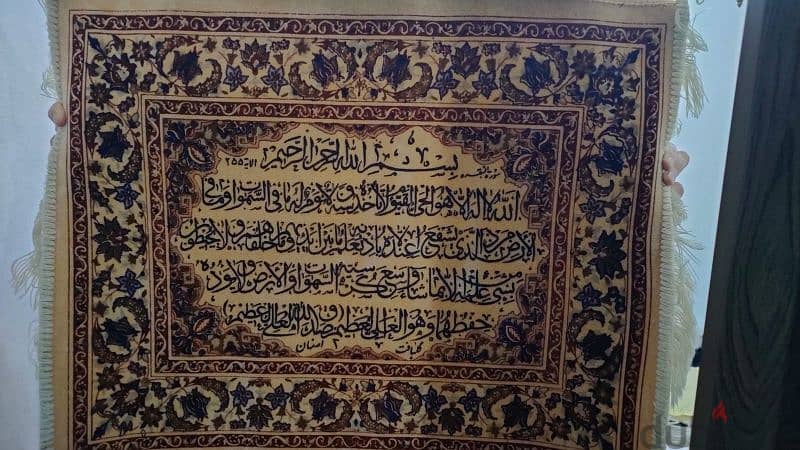 سورة البقرة بسم الله الرحمن الرحيم الاية ٢٥٥
الله لا اله الا هو الحي القيوم لا تأخذه سنة ولا نوم له ما في السموات وما في
الارض من ذا الذي يشفع عنده الا باذنه يعلم ما بين ايديهم وما خلفهم ولا يحيطون
بشيء من علمه الا بما شاء وسع كرسيه السموات والارض ولا يؤده
حفظهما وهو العلي العظيم صدق الله العلي العظيم
اصفهان